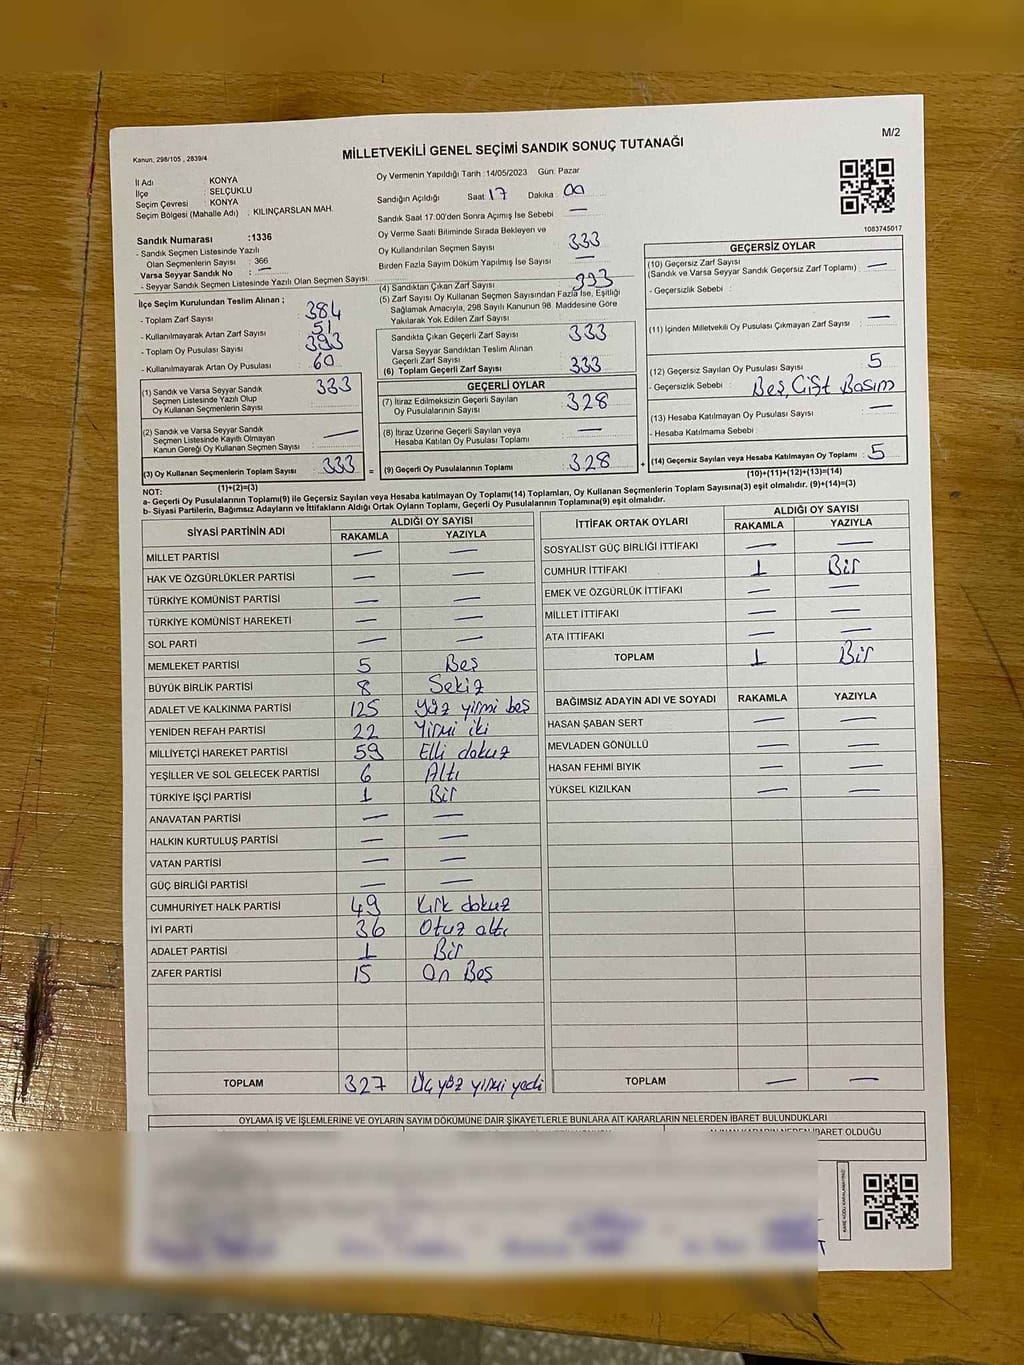 M/2
Kanun, 298/105 , 2839/4
MİLLETVEKİLİ GENEL SEÇİMİ SANDIK SONUÇ TUTANAĞI
İl Adı : KONYA
İlçe : SELÇUKLU
Seçim Çevresi : KONYA
Seçim Bölgesi (Mahalle Adı) : KILINÇARSLAN MAH.
Sandık Numarası :1336
- Sandık Seçmen Listesinde Yazılı
Olan Seçmenlerin Sayısı : 366
Varsa Seyyar Sandık No : —
- Seyyar Sandık Seçmen Listesinde Yazılı Olan Seçmen Sayısı:
Oy Vermenin Yapıldığı Tarih :14/05/2023 Gün: Pazar
Sandığın Açıldığı Saat : 17 Dakika : 00
Sandık Saat 17:00'den Sonra Açımış İse Sebebi —
Oy Verme Saati Bitiminde Sırada Bekleyen ve
Oy Kullandırılan Seçmen Sayısı 333
Birden Fazla Sayım Döküm Yapılmış İse Sayısı —
1083745017
İlçe Seçim Kurulundan Teslim Alınan ;
- Toplam Zarf Sayısı : 384
- Kullanılmayarak Artan Zarf Sayısı : 51
- Toplam Oy Pusulası Sayısı : 393
- Kullanılmayarak Artan Oy Pusulası : 60
(1) Sandık ve Varsa Seyyar Sandık
Seçmen Listesinde Yazılı Olup
Oy Kullanan Seçmenlerin Sayısı 333
(2) Sandık ve Varsa Seyyar Sandık
Seçmen Listesinde Kayıtlı Olmayan
Kanun Gereği Oy Kullanan Seçmen Sayısı —
(3) Oy Kullanan Seçmenlerin Toplam Sayısı 333 =
(1)+(2)=(3)
(4) Sandıktan Çıkan Zarf Sayısı : 393
(5) Zarf Sayısı Oy Kullanan Seçmen Sayısından Fazla İse, Eşitliği
Sağlamak Amacıyla, 298 Sayılı Kanunun 98. Maddesine Göre
Yakılarak Yok Edilen Zarf Sayısı
Sandıkta Çıkan Geçerli Zarf Sayısı 333
Varsa Seyyar Sandıktan Teslim Alınan
Geçerli Zarf Sayısı
(6) Toplam Geçerli Zarf Sayısı 333
GEÇERLİ OYLAR
(7) İtiraz Edilmeksizin Geçerli Sayılan
Oy Pusulalarının Sayısı 328
(8) İtiraz Üzerine Geçerli Sayılan veya
Hesaba Katılan Oy Pusulası Toplamı —
(9) Geçerli Oy Pusulalarının Toplamı 328 +
GEÇERSİZ OYLAR
(10) Geçersiz Zarf Sayısı
(Sandık ve Varsa Seyyar Sandık Geçersiz Zarf Toplamı) : —
- Geçersizlik Sebebi :
(11) İçinden Milletvekili Oy Pusulası Çıkmayan Zarf Sayısı : —
(12) Geçersiz Sayılan Oy Pusulası Sayısı : 5
- Geçersizlik Sebebi : Boş, Çift Basım
(13) Hesaba Katılmayan Oy Pusulası Sayısı : —
- Hesaba Katılmama Sebebi :
(14) Geçersiz Sayılan veya Hesaba Katılmayan Oy Toplamı : 5
(10)+(11)+(12)+(13)=(14)
NOT:
a- Geçerli Oy Pusulalarının Toplamı(9) ile Geçersiz Sayılan veya Hesaba katılmayan Oy Toplamı(14) Toplamları, Oy Kullanan Seçmenlerin Toplam Sayısına(3) eşit olmalıdır. (9)+(14)=(3)
b- Siyasi Partilerin, Bağımsız Adayların ve İttifakların Aldığı Ortak Oyların Toplamı, Geçerli Oy Pusulalarının Toplamına(9) eşit olmalıdır.
SİYASİ PARTİNİN ADI ALDIĞI OY SAYISI
RAKAMLA YAZIYLA
MİLLET PARTİSİ — —
HAK VE ÖZGÜRLÜKLER PARTİSİ — —
TÜRKİYE KOMÜNİST PARTİSİ — —
TÜRKİYE KOMÜNİST HAREKETİ — —
SOL PARTİ — —
MEMLEKET PARTİSİ 5 Beş
BÜYÜK BİRLİK PARTİSİ 8 Sekiz
ADALET VE KALKINMA PARTİSİ 125 Yüz yirmi beş
YENİDEN REFAH PARTİSİ 22 Yirmi iki
MİLLİYETÇİ HAREKET PARTİSİ 59 Elli dokuz
YEŞİLLER VE SOL GELECEK PARTİSİ 6 Altı
TÜRKİYE İŞÇİ PARTİSİ 1 Bir
ANAVATAN PARTİSİ — —
HALKIN KURTULUŞ PARTİSİ — —
VATAN PARTİSİ — —
GÜÇ BİRLİĞİ PARTİSİ — —
CUMHURİYET HALK PARTİSİ 49 Kırk dokuz
İYİ PARTİ 36 Otuz altı
ADALET PARTİSİ 1 Bir
ZAFER PARTİSİ 15 On Beş
TOPLAM 327 Üç yüz yirmi yedi
İTTİFAK ORTAK OYLARI ALDIĞI OY SAYISI
RAKAMLA YAZIYLA
SOSYALİST GÜÇ BİRLİĞİ İTTİFAKI — —
CUMHUR İTTİFAKI 1 Bir
EMEK VE ÖZGÜRLÜK İTTİFAKI — —
MİLLET İTTİFAKI — —
ATA İTTİFAKI — —
TOPLAM 1 Bir
BAĞIMSIZ ADAYIN ADI VE SOYADI RAKAMLA YAZIYLA
HASAN ŞABAN SERT — —
MEVLADEN GÖNÜLLÜ — —
HASAN FEHMİ BIYIK — —
YÜKSEL KIZILKAN — —
TOPLAM — —
OYLAMA İŞ VE İŞLEMLERİNE VE OYLARIN SAYIM DÖKÜMÜNE DAİR ŞİKAYETLERLE BUNLARA AİT KARARLARIN NELERDEN İBARET BULUNDUKLARI
ALINAN KARARIN NEDEN İBARET OLDUĞU